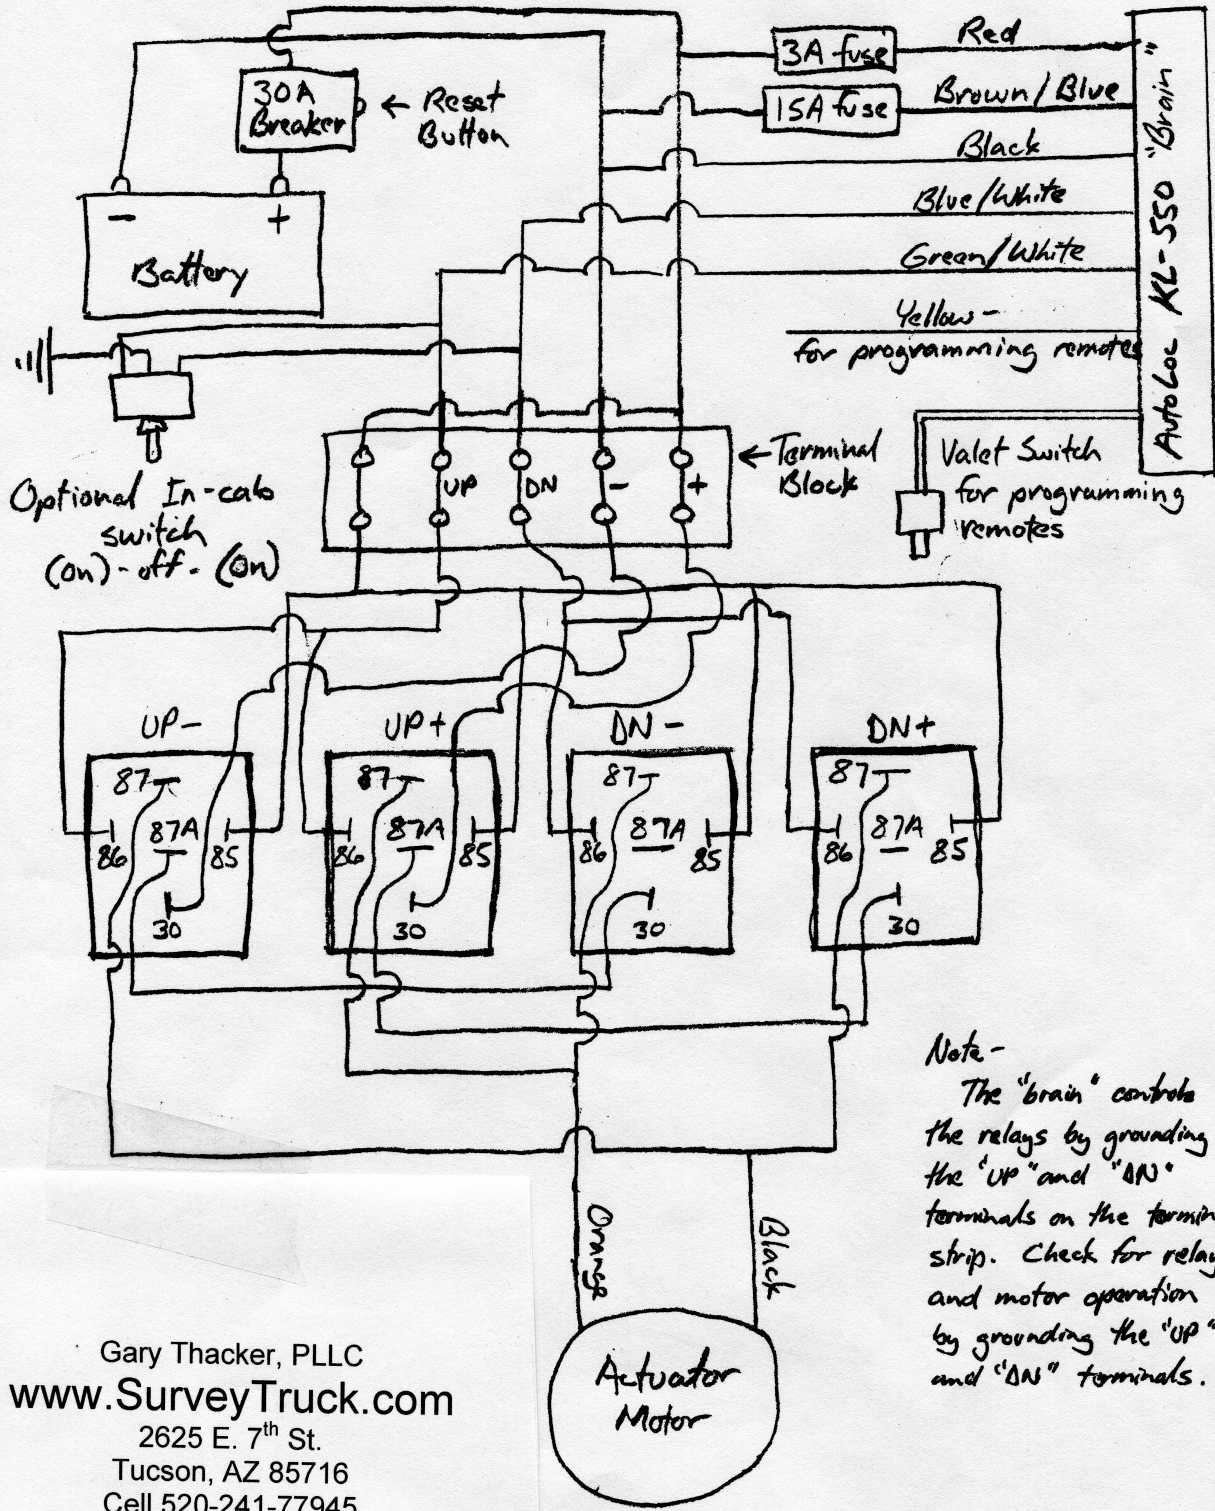 30A
Breaker
← Reset
Button
3A fuse
Red
15A fuse
Brown/Blue
Black
Blue/White
Green/White
Yellow -
for programming remotes
AutoLoc KL-550 "Brain"
- +
Battery
Optional In-cab
switch
(on) - off - (on)
UP DN - +
← Terminal
Block
Valet Switch
for programming
remotes
UP-
87
87A
86 85
30
UP+
87
87A
86 85
30
DN-
87
87A
86 85
30
DN+
87
87A
86 85
30
Orange
Black
Actuator
Motor
Note -
The "brain" controls
the relays by grounding
the "UP" and "DN"
terminals on the termin
strip. Check for relay
and motor operation
by grounding the "UP"
and "DN" terminals.
Gary Thacker, PLLC
www.SurveyTruck.com
2625 E. 7th St.
Tucson, AZ 85716
Cell 520-241-77945